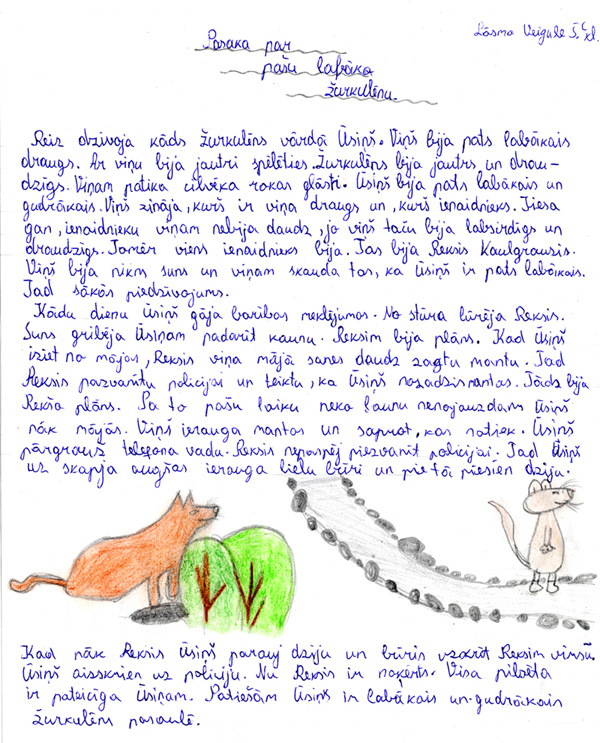 Lāsma Veigule 5.c kl.
Pasaka par
pašu labāko
žurkulēnu.
Reiz dzīvoja kāds žurkulēns vārdā Ūsiņš. Viņš bija pats labākais
draugs. Ar viņu bija jautri spēlēties. Žurkulēns bija jautrs un drau-
dzīgs. Viņam patika cilvēka rokas glāsti. Ūsiņš bija pats labākais un
gudrākais. Viņš zināja, kurš ir viņa draugs un, kurš ienaidnieks. Tiesa
gan, ienaidnieku viņam nebija daudz, jo viņš taču bija labsirdīgs un
draudzīgs. Tomēr viens ienaidnieks bija. Tas bija Reksis Kaulgrausis.
Viņš bija nikns suns un viņam skauda tas, ka Ūsiņš ir pats labākais.
Tad sākās piedzīvojums.
Kādu dienu Ūsiņš gāja barības meklējumos. No stūra lūrēja Reksis.
Suns gribēja Ūsiņam padarīt kaunu. Reksim bija plāns. Kad Ūsiņš
iziet no mājas, Reksis viņa mājā sanes daudz zagtu mantu. Tad
Reksis pazvanītu policijai un teiktu, ka Ūsiņš nozadzis mantas. Tāds bija
Rekša plāns. Pa to pašu laiku neko ļaunu nenojauzdams Ūsiņš
nāk mājās. Viņš ierauga mantas un saprot, kas notiek. Ūsiņš
pārgrauž telefona vadu. Reksis nepaspēj piezvanīt policijai. Tad Ūsiņš
uz skapja augšas ierauga lielu būri un pie tā piesien dziju.
Kad nāk Reksis Ūsiņš parauj dziju un būris uzkrīt Reksim virsū.
Ūsiņš aizskrien uz policiju. Nu Reksis ir noķerts. Visa pilsēta
ir pateicīga Ūsiņam. Patiešām Ūsiņš ir labākais un gudrākais
žurkulēns pasaulē.